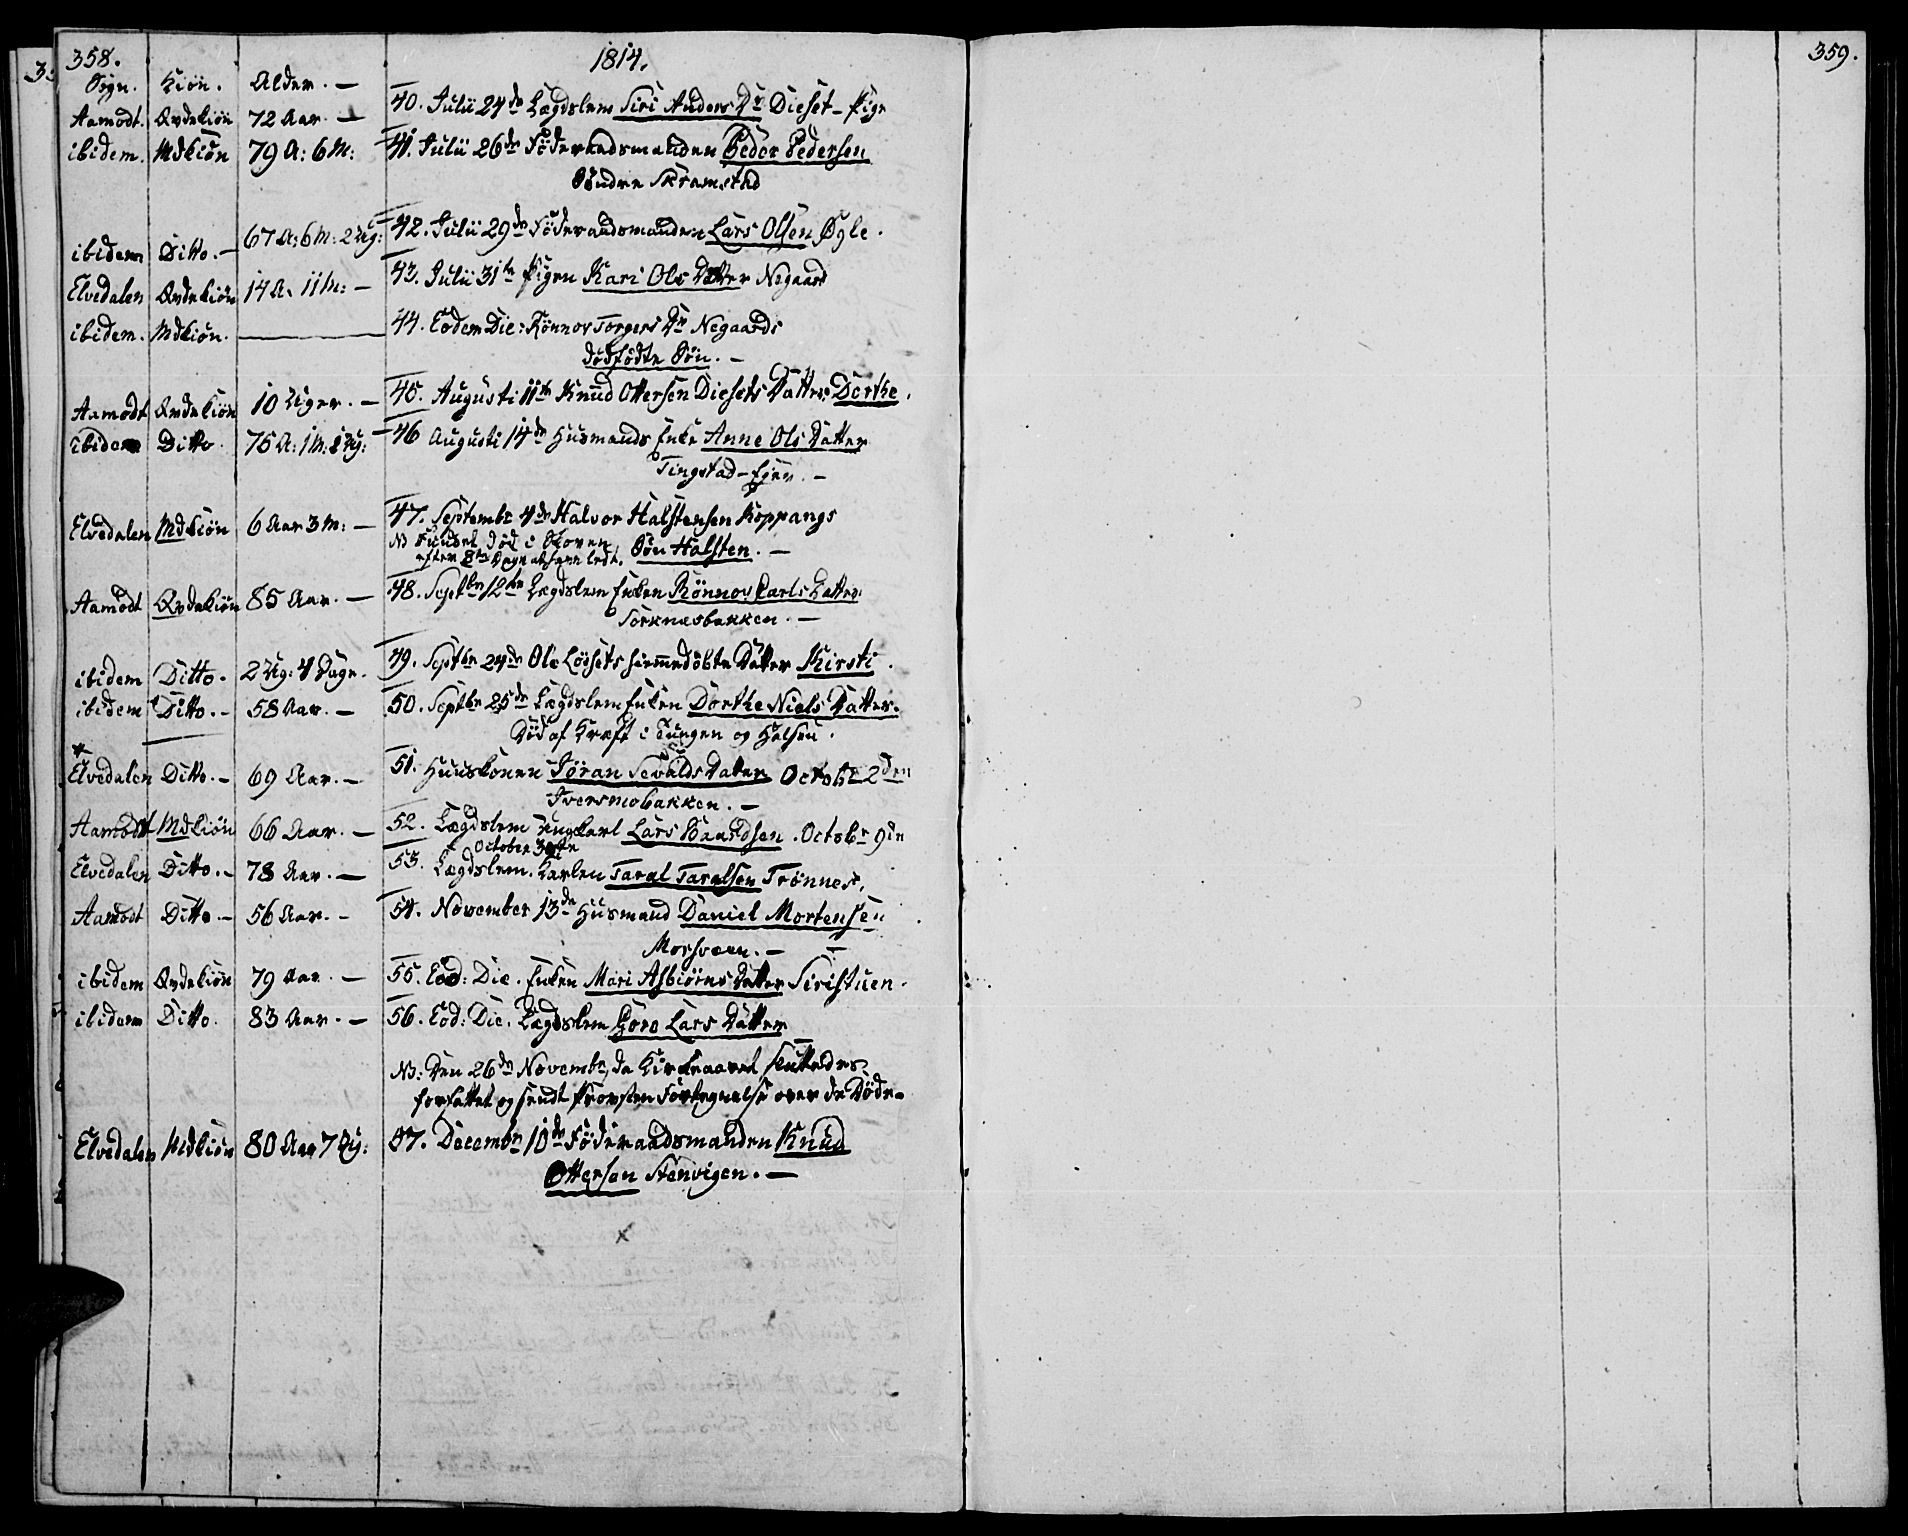 358.
1814.
359.
Sogn. Kiön. Alder. —
Aamodt. Qvdekiön 72 Aar. — 40. Julii 24de Lægdslem Siri Anders Dr Dieset — Pige
ibidem. Mdkiön 79 A: 6 M: 41. Julii 26de Föderaadsmanden Peder Pedersen
Söndre Skramstad
ibidem Ditto. — 67 A: 6 M: 2 Ug: 42. Julii 29de Föderaadsmanden Lars Olsen Øgle.
Elvedalen Qvdekiön 14 A. 11 M: — 43. Julii 31te Pigen Kari Ols Datter Negaard
ibidem. Mdkiön. — 44. Eodem Die: Rönnov Torgers Dr Negaards
dödfödte Sön. —
Aamodt Qvdekiön 10 Uger. — 45. Augusti 11te Knud Ottersen Diesets Datter Dorthe.
ibidem Ditto. 76 A: 1 M: 2 Ug: 46 Augusti 14de Husmands Enke Anne Ols Datter
Tingstad-Ejen. —
Elvedalen Mdkiön 6 Aar 3 M: — 47. Septembr 4de Halvor Halstensen Koppangs
NB funden död i Skoven Sön Halsten. —
efter 8te Dages
Aamodt Qvdekiön 85 Aar. — 48. Septbr 12te Lægdslem Enken Rönnov Carls Datter
Sorknæsbakken. —
ibidem Ditto. 2 Ug: 4 Dage. 49. Septbr 24de Ole Lösets hiemmedöbte Datter Kirsti.
ibidem Ditto. — 58 Aar. — 50. Septbr 25de Lægdslem Enken Dorthe Niels Datter.
Död af Kræft i Tungen og Halsen.
Elvedalen Ditto. — 69 Aar. — 51. Huuskonen Jöran Sevalds Datter Octobr 2den
Iversmobakken. —
Aamodt Mdkiön 66 Aar. — 52. Lægdslem Ungkarl Lars Baardsen. Octobr 9de
October 30te
Elvedalen Ditto. — 78 Aar. — 53. Lægdslem. Karlen Taral Taralsen Trönnes.
Aamodt Ditto — 56 Aar. — 54. November 13de Husmand Daniel Mortensen
Morsveen. —
ibidem Qvdekiön 79 Aar. — 55. Eod: Die. Enken Mari Asbiörns Datter Siristuen.
ibidem Ditto. 83 Aar. — 56. Eod: Die. Lægdslem Goro Lars Datter
NB: Den 26de Novembr, da Kirkeaaret sluttedes,
forfattet og sendt Provsten Fortegnelse over de Döde.
Elvedalen Mdkiön 80 Aar 7 Ug: 57. Decembr 10de Föderaadsmanden Knud
Ottersen Stenvigen. —